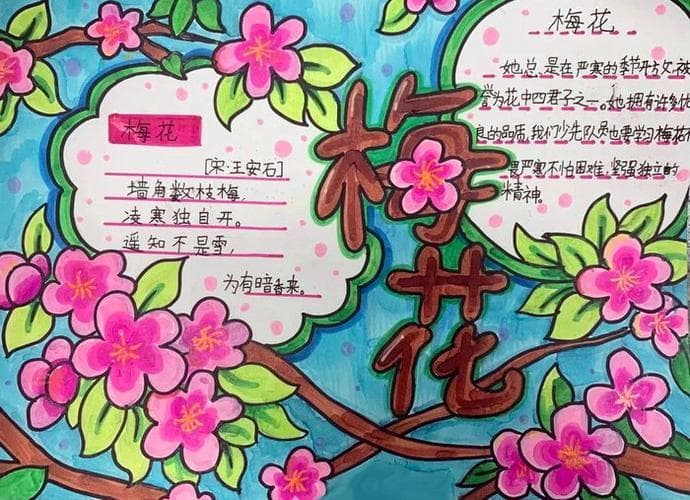 梅花
[宋·王安石]
墙角数枝梅,
凌寒独自开。
遥知不是雪,
为有暗香来。
梅花
梅花
她总是在严寒的季节开放,被
誉为花中四君子之一。她拥有许多优
良的品质,我们少先队员也要学习梅花不
畏严寒不怕困难,坚强独立的
精神。